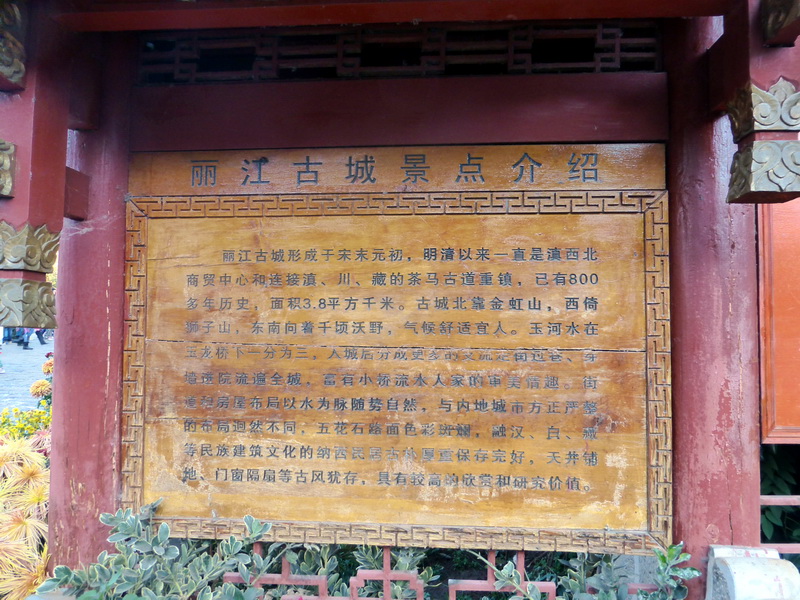 丽江古城景点介绍
丽江古城形成于宋末元初，明清以来一直是滇西北
商贸中心和连接滇、川、藏的茶马古道重镇，已有800
多年历史，面积3.8平方千米。古城北靠金虹山，西倚
狮子山，东南向着千顷沃野，气候舒适宜人。玉河水在
玉龙桥下一分为三，入城后分成更多的支流走街过巷、穿
墙透院流遍全城，富有小桥流水人家的审美情趣。街
道和房屋布局以水为脉随势自然，与内地城市方正严
的布局迥然不同；五花石路面色彩斑斓，融汉、白、藏
等民族建筑文化的纳西民居古朴厚重保存完好，天井铺
地、门窗隔扇等古风犹存，具有较高的欣赏和研究价值。